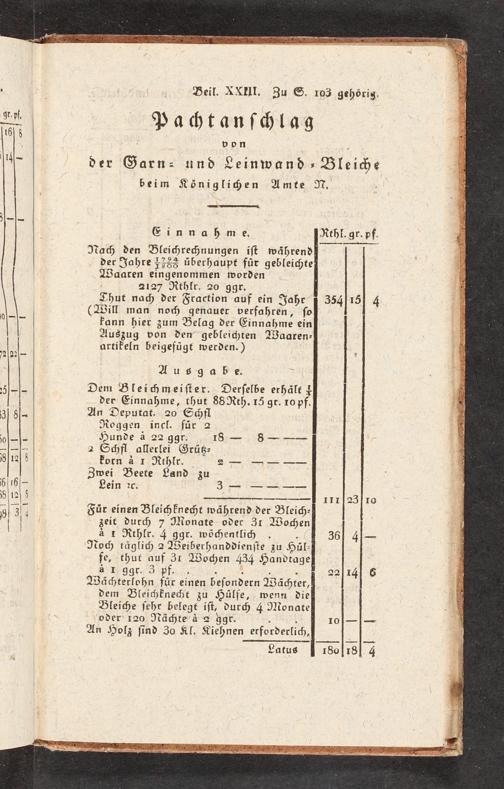 Beil. XXIII. Zu S. 103 gehörig.
Pachtanschlag
von
der Garn- und Leinwand-Bleiche
beim Königlichen Amte N.
Einnahme. Rthl. gr. pf.
Nach den Bleichrechnungen ist während
der Jahre 1794/1800 überhaupt für gebleichte
Waaren eingenommen worden
2127 Rthlr. 20 ggr.
Thut nach der Fraction auf ein Jahr 354 15 4
(Will man noch genauer verfahren, so
kann hier zum Belag der Einnahme ein
Auszug von den gebleichten Waaren-
artikeln beigefügt werden.)
Ausgabe.
Dem Bleichmeister. Derselbe erhält ¼
der Einnahme, thut 88 Rth. 15 gr. 10 pf.
An Deputat. 20 Schfl
Roggen incl. für 2
Hunde à 22 ggr. 18 — 8 — — —
2 Schfl allerlei Grütz-
korn à 1 Rthlr. 2 — — — —
Zwei Beete Land zu
Lein ꝛc. 3 — — — —
111 23 10
Für einen Bleichknecht während der Bleich-
zeit durch 7 Monate oder 31 Wochen
à 1 Rthlr. 4 ggr. wöchentlich . . 36 4 —
Noch täglich 2 Weiberhanddienste zu Hül-
fe, thut auf 31 Wochen 434 Handtage
à 1 ggr. 3 pf. . . . . . 22 14 6
Wächterlohn für einen besondern Wächter,
dem Bleichknecht zu Hülfe, wenn die
Bleiche sehr belegt ist, durch 4 Monate
oder 120 Nächte à 2 ggr. . . 10 — —
An Holz sind 30 Kl. Kiehnen erforderlich,
Latus 180 18 4